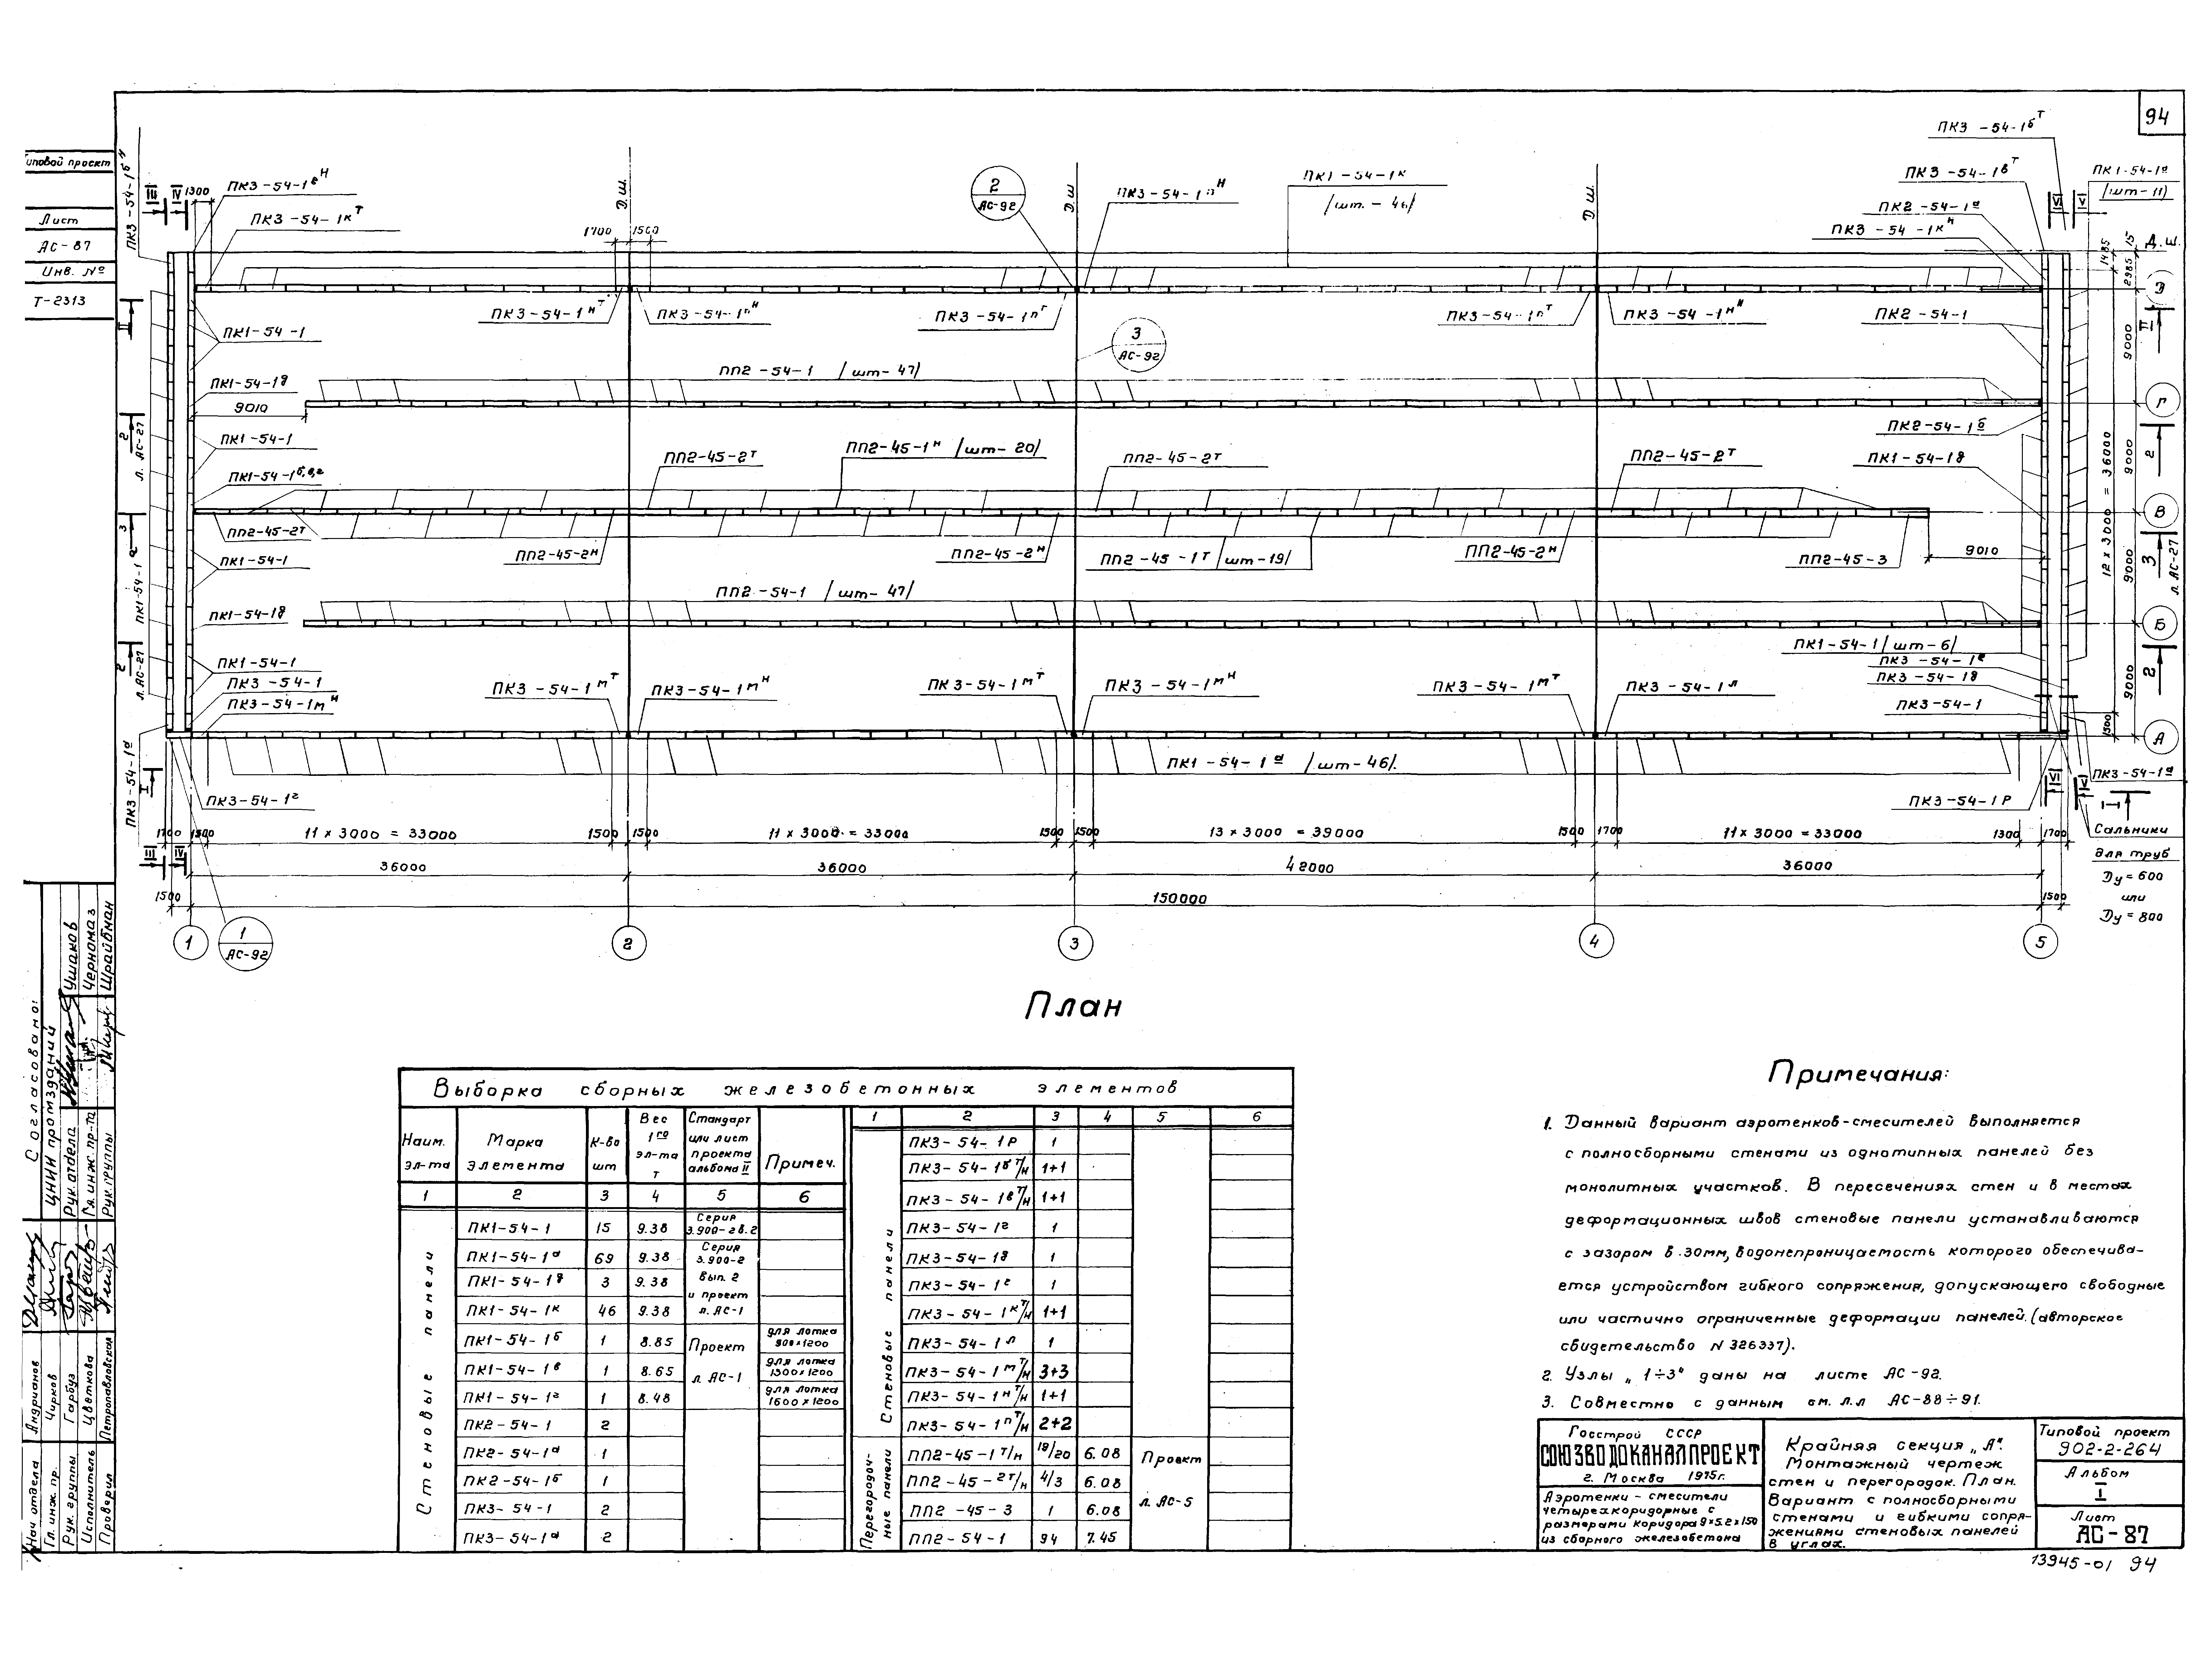 94
Типовой проект
Лист
АС-87
Инв. №
Т-2313
ПК3-54-1б Н
III IV 1300
ПК3-54-1в Н
ПК3-54-1к Т
Д.ш.
1700 1500
2
АС-92
Д.ш
ПК3-54-1п Н
ПК1-54-1к
/шт.-46/
Д.ш
ПК3-54-1б Т
ПК3-54-1в Т
ПК2-54-1а
ПК3-54-1к Н
VI V
ПК1-54-1а
/шт-11/
1485 15
Д.ш.
2985
Д
ПК3-54-1н Т
ПК3-54-1п Н
ПК3-54-1п Т
ПК3-54-1п Т
ПК3-54-1н Н
ПК2-54-1
II
ПК1-54-1
3
АС-92
II
9000
ПП2-54-1 /шт-47/
ПК1-54-1д
9010
Г
ПК2-54-1б
2
л. АС-27
ПК1-54-1
ПП2-45-2Т
ПП2-45-1Н /шт-20/
ПП2-45-2Т
ПП2-45-2Т
ПК1-54-1д
12 x 3000 = 36000
9000
2
ПК1-54-1б,в,г
ПП2-45-2Т
В
3
ПК1-54-1
ПП2-45-2Н
ПП2-45-2Н
ПП2-45-1Т /шт-19/
ПП2-45-2Н
ПП2-45-3
9010
9000
3
л. АС-27
ПК1-54-1а
ПП2-54-1 /шт-47/
ПК1-54-1д
Б
ПК1-54-1 /шт-6/
2
л. АС-27
ПК1-54-1
ПК3-54-1
ПК3-54-1м Н
ПК3-54-1м Т
ПК3-54-1м Н
ПК3-54-1м Т
ПК3-54-1м Н
ПК3-54-1м Т
ПК3-54-1л
ПК3-54-1е
ПК3-54-1д
ПК3-54-1
9000
2
1500
А
ПК3-54-1а
I
ПК1-54-1а /шт-46/.
ПК3-54-1г
ПК3-54-1Р
VI V
ПК3-54-1а
I
1700 1500 11 x 3000 = 33000 1500 1500 11 x 3000 = 33000 1500 1500 13 x 3000 = 39000 1500 1700 11 x 3000 = 33000 1300 1700
Сальники
для труб
Dу = 600
или
Dу = 800
III IV
36000 36000 42000 36000
1500 150000 1500
1
1
АС-92
2 3 4 5
План
Выборка сборных железобетонных элементов
Наим. эл-та
Марка элемента
К-во шт
Вес 1го эл-та т
Стандарт или лист проекта альбома II
Примеч.
1 2 3 4 5 6
Стеновые панели
ПК1-54-1 15 9.38 Серия 3.900-2 в.2
ПК1-54-1а 69 9.38 Серия 3.900-2
ПК1-54-1д 3 9.38 Вып. 2 и проект
ПК1-54-1к 46 9.38 л. АС-1
ПК1-54-1б 1 8.85 Проект для лотка 900x1200
ПК1-54-1в 1 8.65 л. АС-1 для лотка 1300x1200
ПК1-54-1г 1 8.48 для лотка 1600x1200
ПК2-54-1 2
ПК2-54-1а 1
ПК2-54-1б 1
ПК3-54-1 2
ПК3-54-1а 2
1 2 3 4 5 6
Стеновые панели
ПК3-54-1Р 1
ПК3-54-1б Т/Н 1+1
ПК3-54-1в Т/Н 1+1
ПК3-54-1г 1
ПК3-54-1д 1
ПК3-54-1е 1
ПК3-54-1к Т/Н 1+1
ПК3-54-1л 1
ПК3-54-1м Т/Н 3+3
ПК3-54-1н Т/Н 1+1
ПК3-54-1п Т/Н 2+2
Перегородочные панели
ПП2-45-1Т/Н 19/20 6.08 Проект
ПП2-45-2Т/Н 4/3 6.08
ПП2-45-3 1 6.08 л. АС-5
ПП2-54-1 94 7.45
Примечания:
1. Данный вариант аэротенков-смесителей выполняется
с полносборными стенами из однотипных панелей без
монолитных участков. В пересечениях стен и в местах
деформационных швов стеновые панели устанавливаются
с зазором в 30мм, водонепроницаемость которого обеспечива-
ется устройством гибкого сопряжения, допускающего свободные
или частично ограниченные деформации панелей.(авторское
свидетельство N 326337).
2. Узлы „1÷3" даны на листе АС-92.
3. Совместно с данным см. л.л АС-88÷91.
Госстрой СССР
СОЮЗВОДОКАНАЛПРОЕКТ
г. Москва 1975г.
Аэротенки-смесители
четырехкоридорные с
размерами коридора 9x5.2x150
из сборного железобетона
Крайняя секция „А".
Монтажный чертеж
стен и перегородок. План.
Вариант с полносборными
стенами и гибкими сопря-
жениями стеновых панелей
в углах.
Типовой проект
902-2-264
Альбом
I
Лист
АС-87
13945-01 94
Согласовано:
ЦНИИ промзданий
Рук. отдела Ушаков
Гл. инж. пр-та Черномаз
Рук. группы Шрайбман
Нач отдела Андрианов
Гл. инж. пр. Чирков
Рук. группы Гарбуз
Исполнитель Цветкова
Проверил Петропавловская